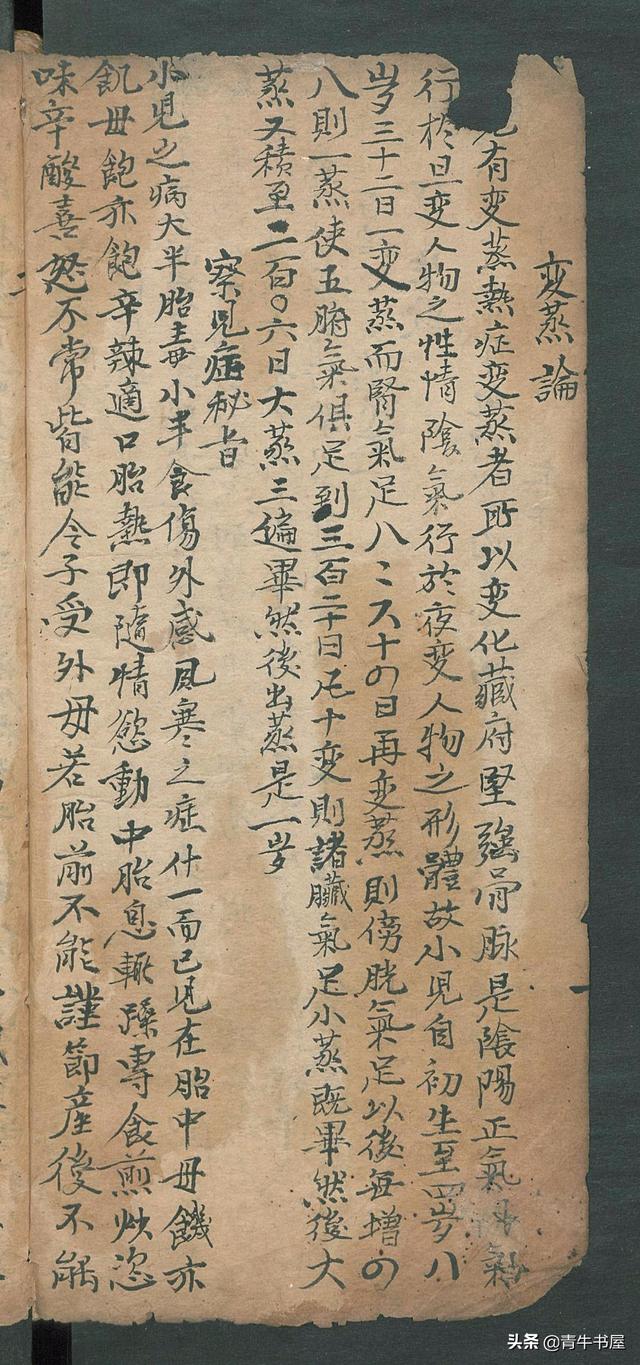 变蒸論
兒有变蒸熱症变蒸者所以变化藏府堅强骨脉是陰陽正氣丹氣
行於旦变人物之性情陰氣行於夜变人物之形體故小兒自初生至四岁八
岁三十二日一变蒸而腎氣足八〻六十四日再变蒸則傍胱氣足以後每增四
八則一蒸使五腑氣俱足到三百二十日凡十变則諸臟氣足小蒸既畢然後大
蒸又積至二百〇六日大蒸三遍畢然後出蒸是一岁
察兒病秘旨
小兒之病大半胎毒小半食傷外感風寒之症什一而已兒在胎中母饑亦
飢母飽亦飽辛辣適口胎熱即隨情慾動中胎息輒躁專食煎炒恣
味辛酸喜怒不常皆能令子受外母若胎前不能謹節産後不能
头条@青牛书屋